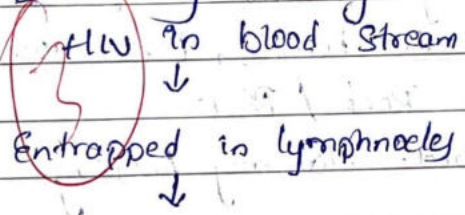 HIV in blood stream
↓
Entrapped in lymphnodes
↓